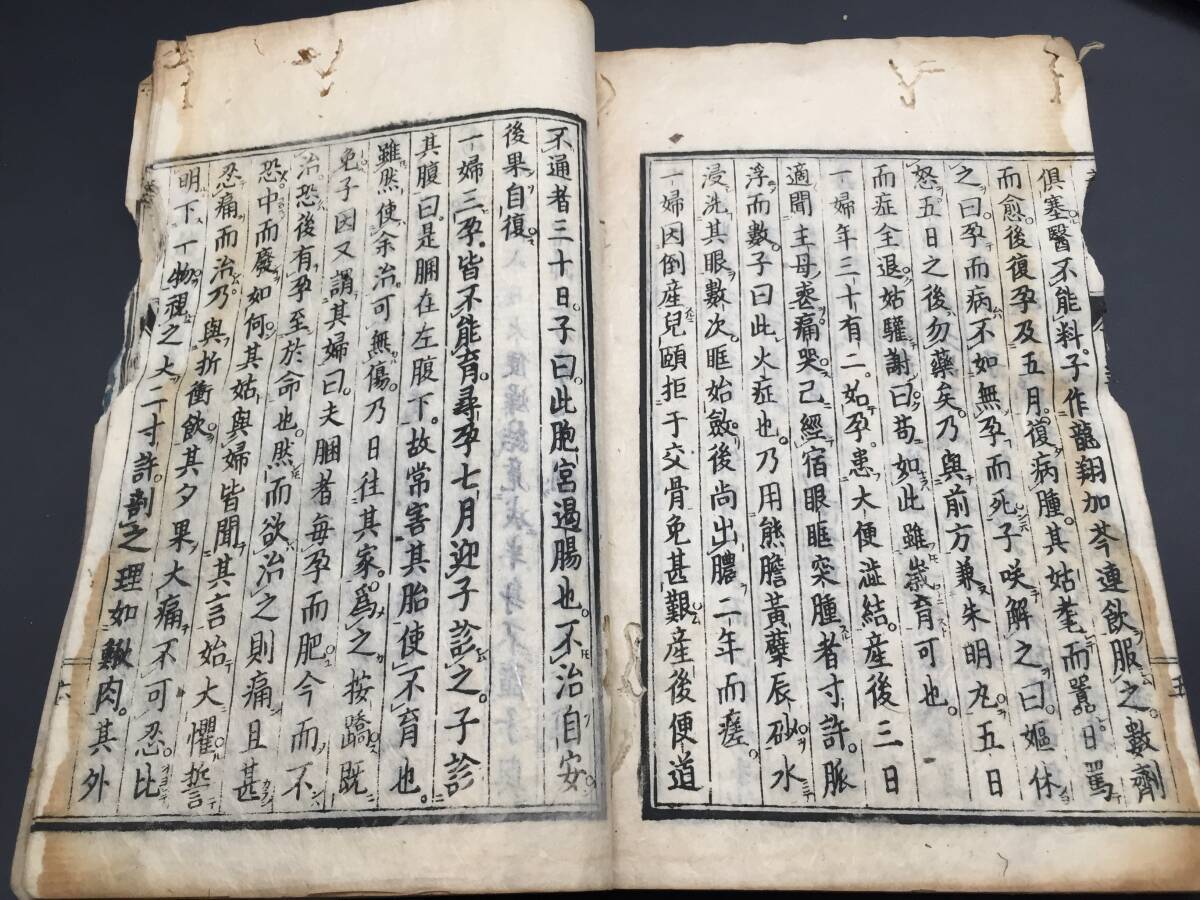 俱塞醫不能料子作龍翔加芩連飲服之數劑
而愈後復孕及五月復病腫其姑耄而嚚日罵
之曰孕而病不如無孕而死子咲解之曰嫗休
怒五日之後勿藥矣乃與前方兼朱明丸五日
而症全退姑驩謝曰苟如此雖歲育可也
一婦年三十有二如孕患大便澁結產後三日
適聞主母喪痛哭已經宿眼眶突腫者寸許脈
浮而數子曰此火症也乃用熊膽黃蘗辰砂水
浸洗其眼數次眶始斂後尚出膿二年而瘥
一婦因倒產兒頤拒于交骨免甚艱產後便道
五
不通者三十日子曰此胞宮遏腸也不治自安
後果自復
一婦三孕皆不能育尋孕七月迎子診之子診
其腹曰是膕在左腹下故常害其胎使不育也
雖然使余治可無傷乃日往其家為之按蹻既
免子因又謂其婦曰夫膕者每孕而肥今而不
治恐後有孕至於命也然而欲治之則痛且甚
恐中而廢如何其姑與婦皆聞其言始大懼誓
忍痛而治乃與折衝飲其夕果大痛不可忍比
明下一物視之大二寸許割之理如鰍肉其外
六